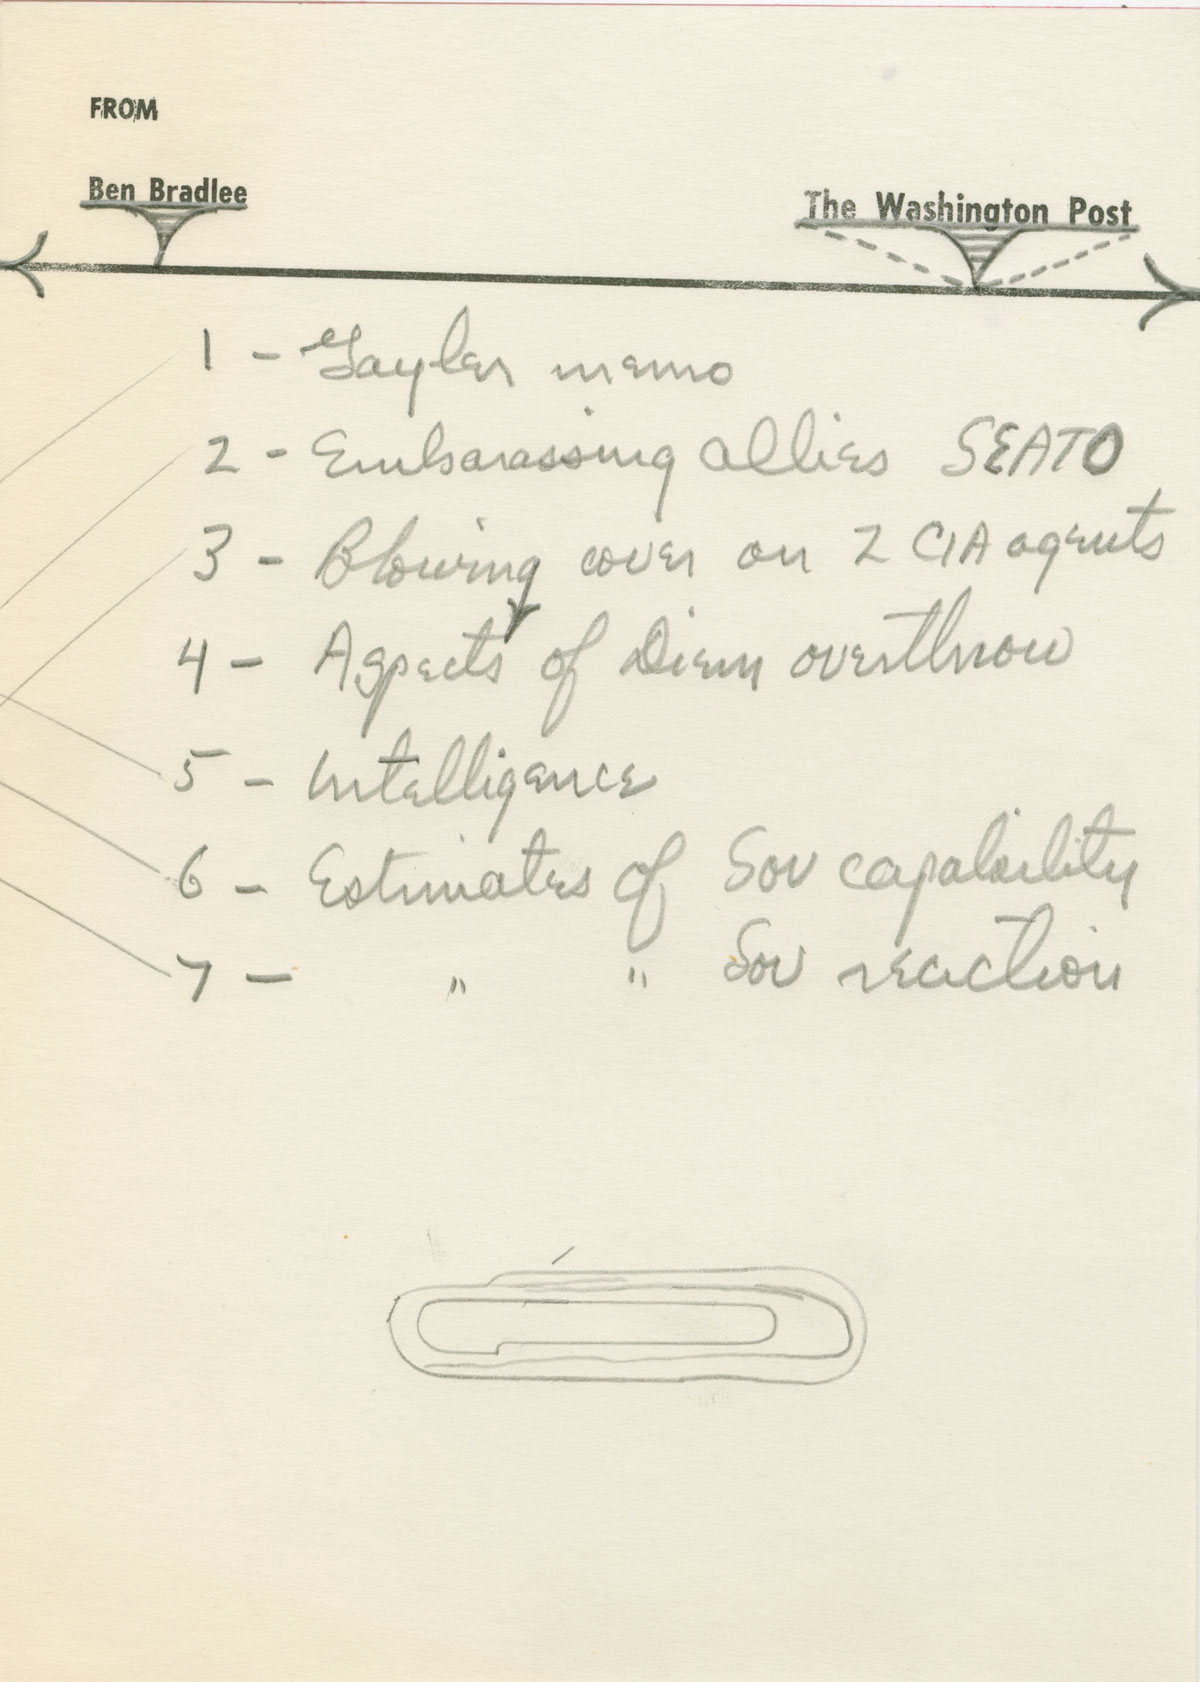 FROM
Ben Bradlee
The Washington Post
1 - Gayler memo
2 - Embarassing allies SEATO
3 - Blowing cover on 2 CIA agents
4 - Aspects of Diem overthrow
5 - Intelligence
6 - Estimates of Sov capability
7 - " " Sov reaction